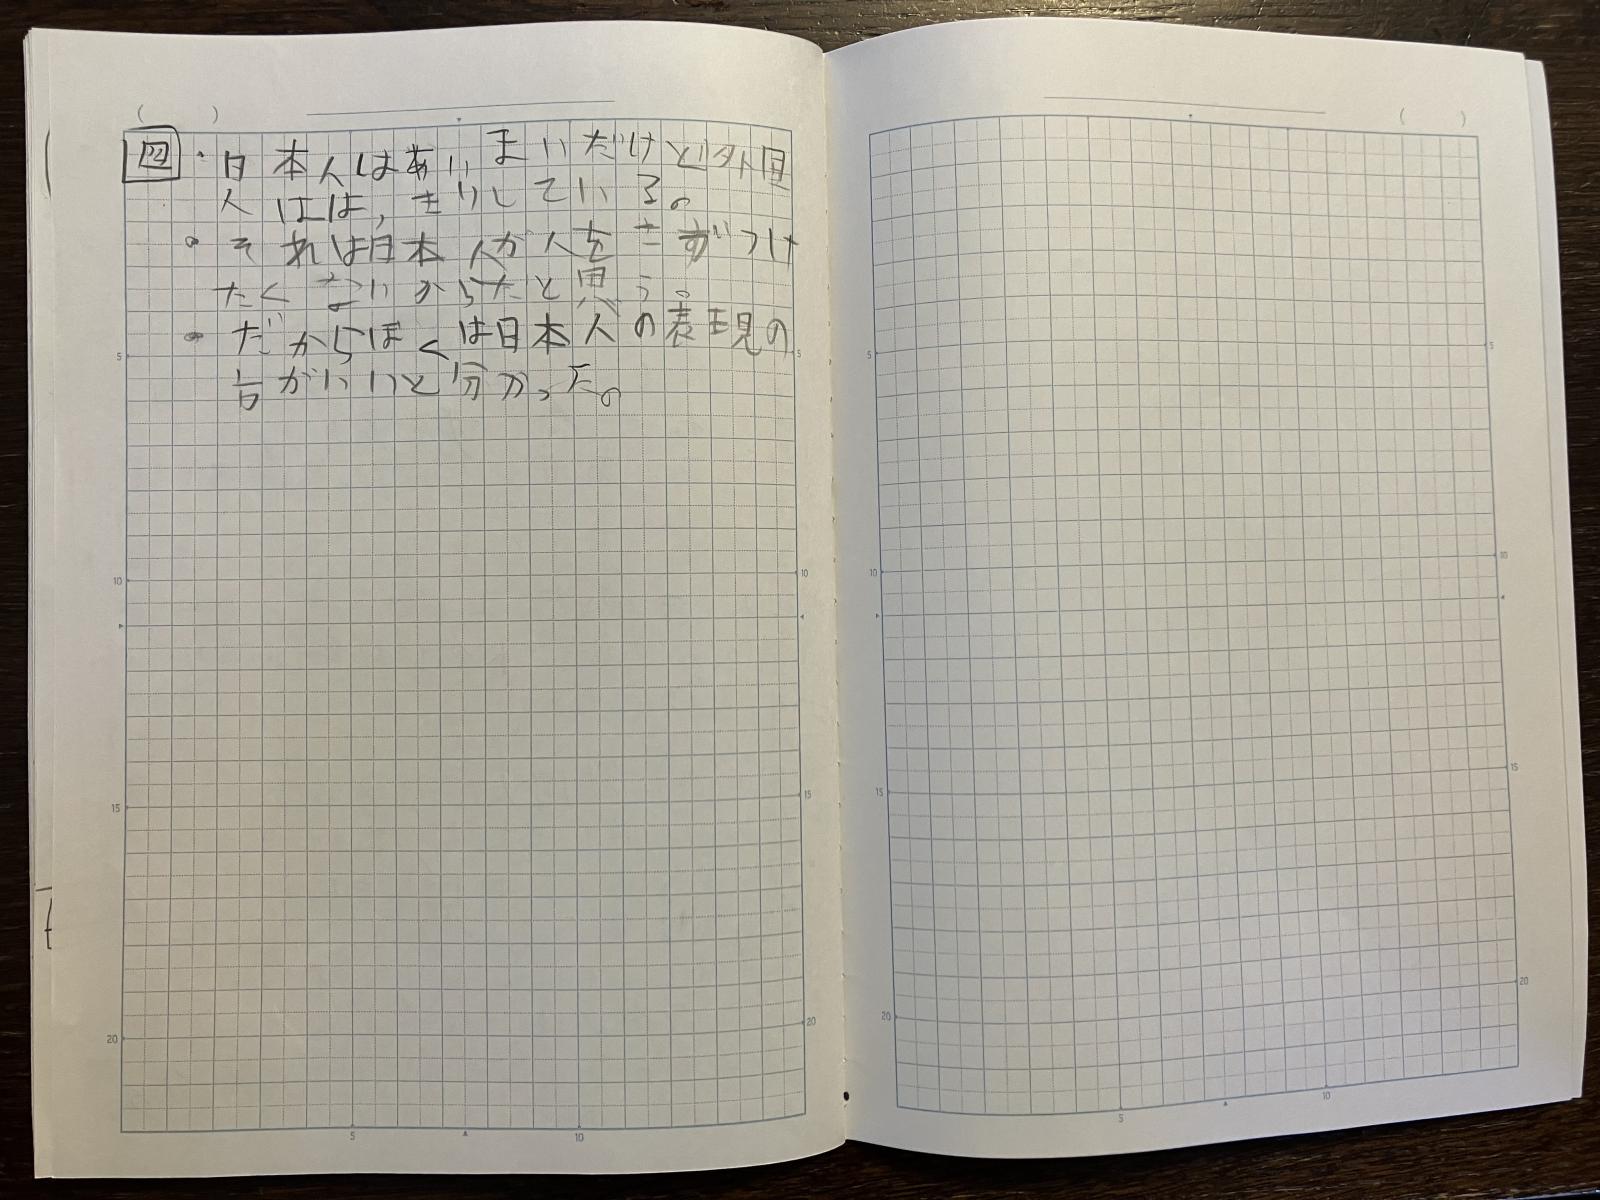 ・日本人はあいまいだけど外国
人ははっきりしている。
・それは日本人が人をきずつけ
たくないからだと思う。
・だからぼくは日本人の表現の
方がいいと分かった。
5
10
15
20
5
10
15
20
5
10
5
10
15
20
5
10
15
20
5
10